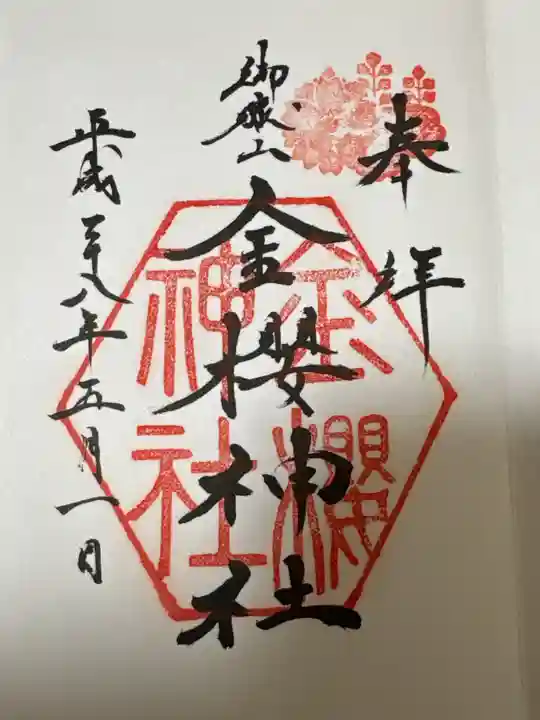 奉拝
御嶽山
金櫻神社
金櫻
神社
平成二十八年五月一日